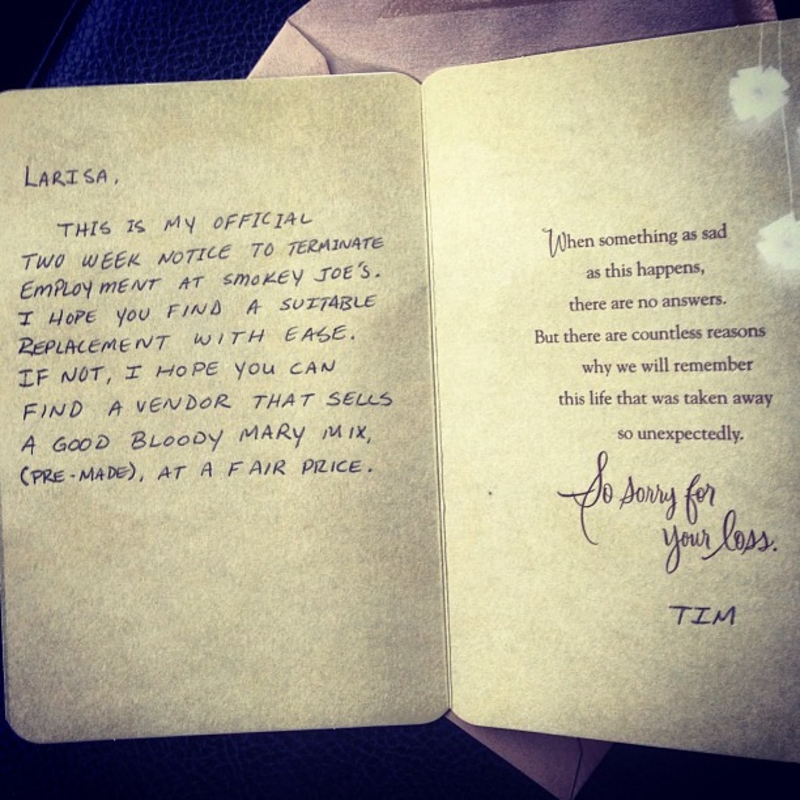 LARISA,
THIS IS MY OFFICIAL
TWO WEEK NOTICE TO TERMINATE
EMPLOYMENT AT SMOKEY JOE'S.
I HOPE YOU FIND A SUITABLE
REPLACEMENT WITH EASE.
IF NOT, I HOPE YOU CAN
FIND A VENDOR THAT SELLS
A GOOD BLOODY MARY MIX,
(PRE-MADE), AT A FAIR PRICE.
When something as sad
as this happens,
there are no answers.
But there are countless reasons
why we will remember
this life that was taken away
so unexpectedly.
So sorry for
your loss.
TIM